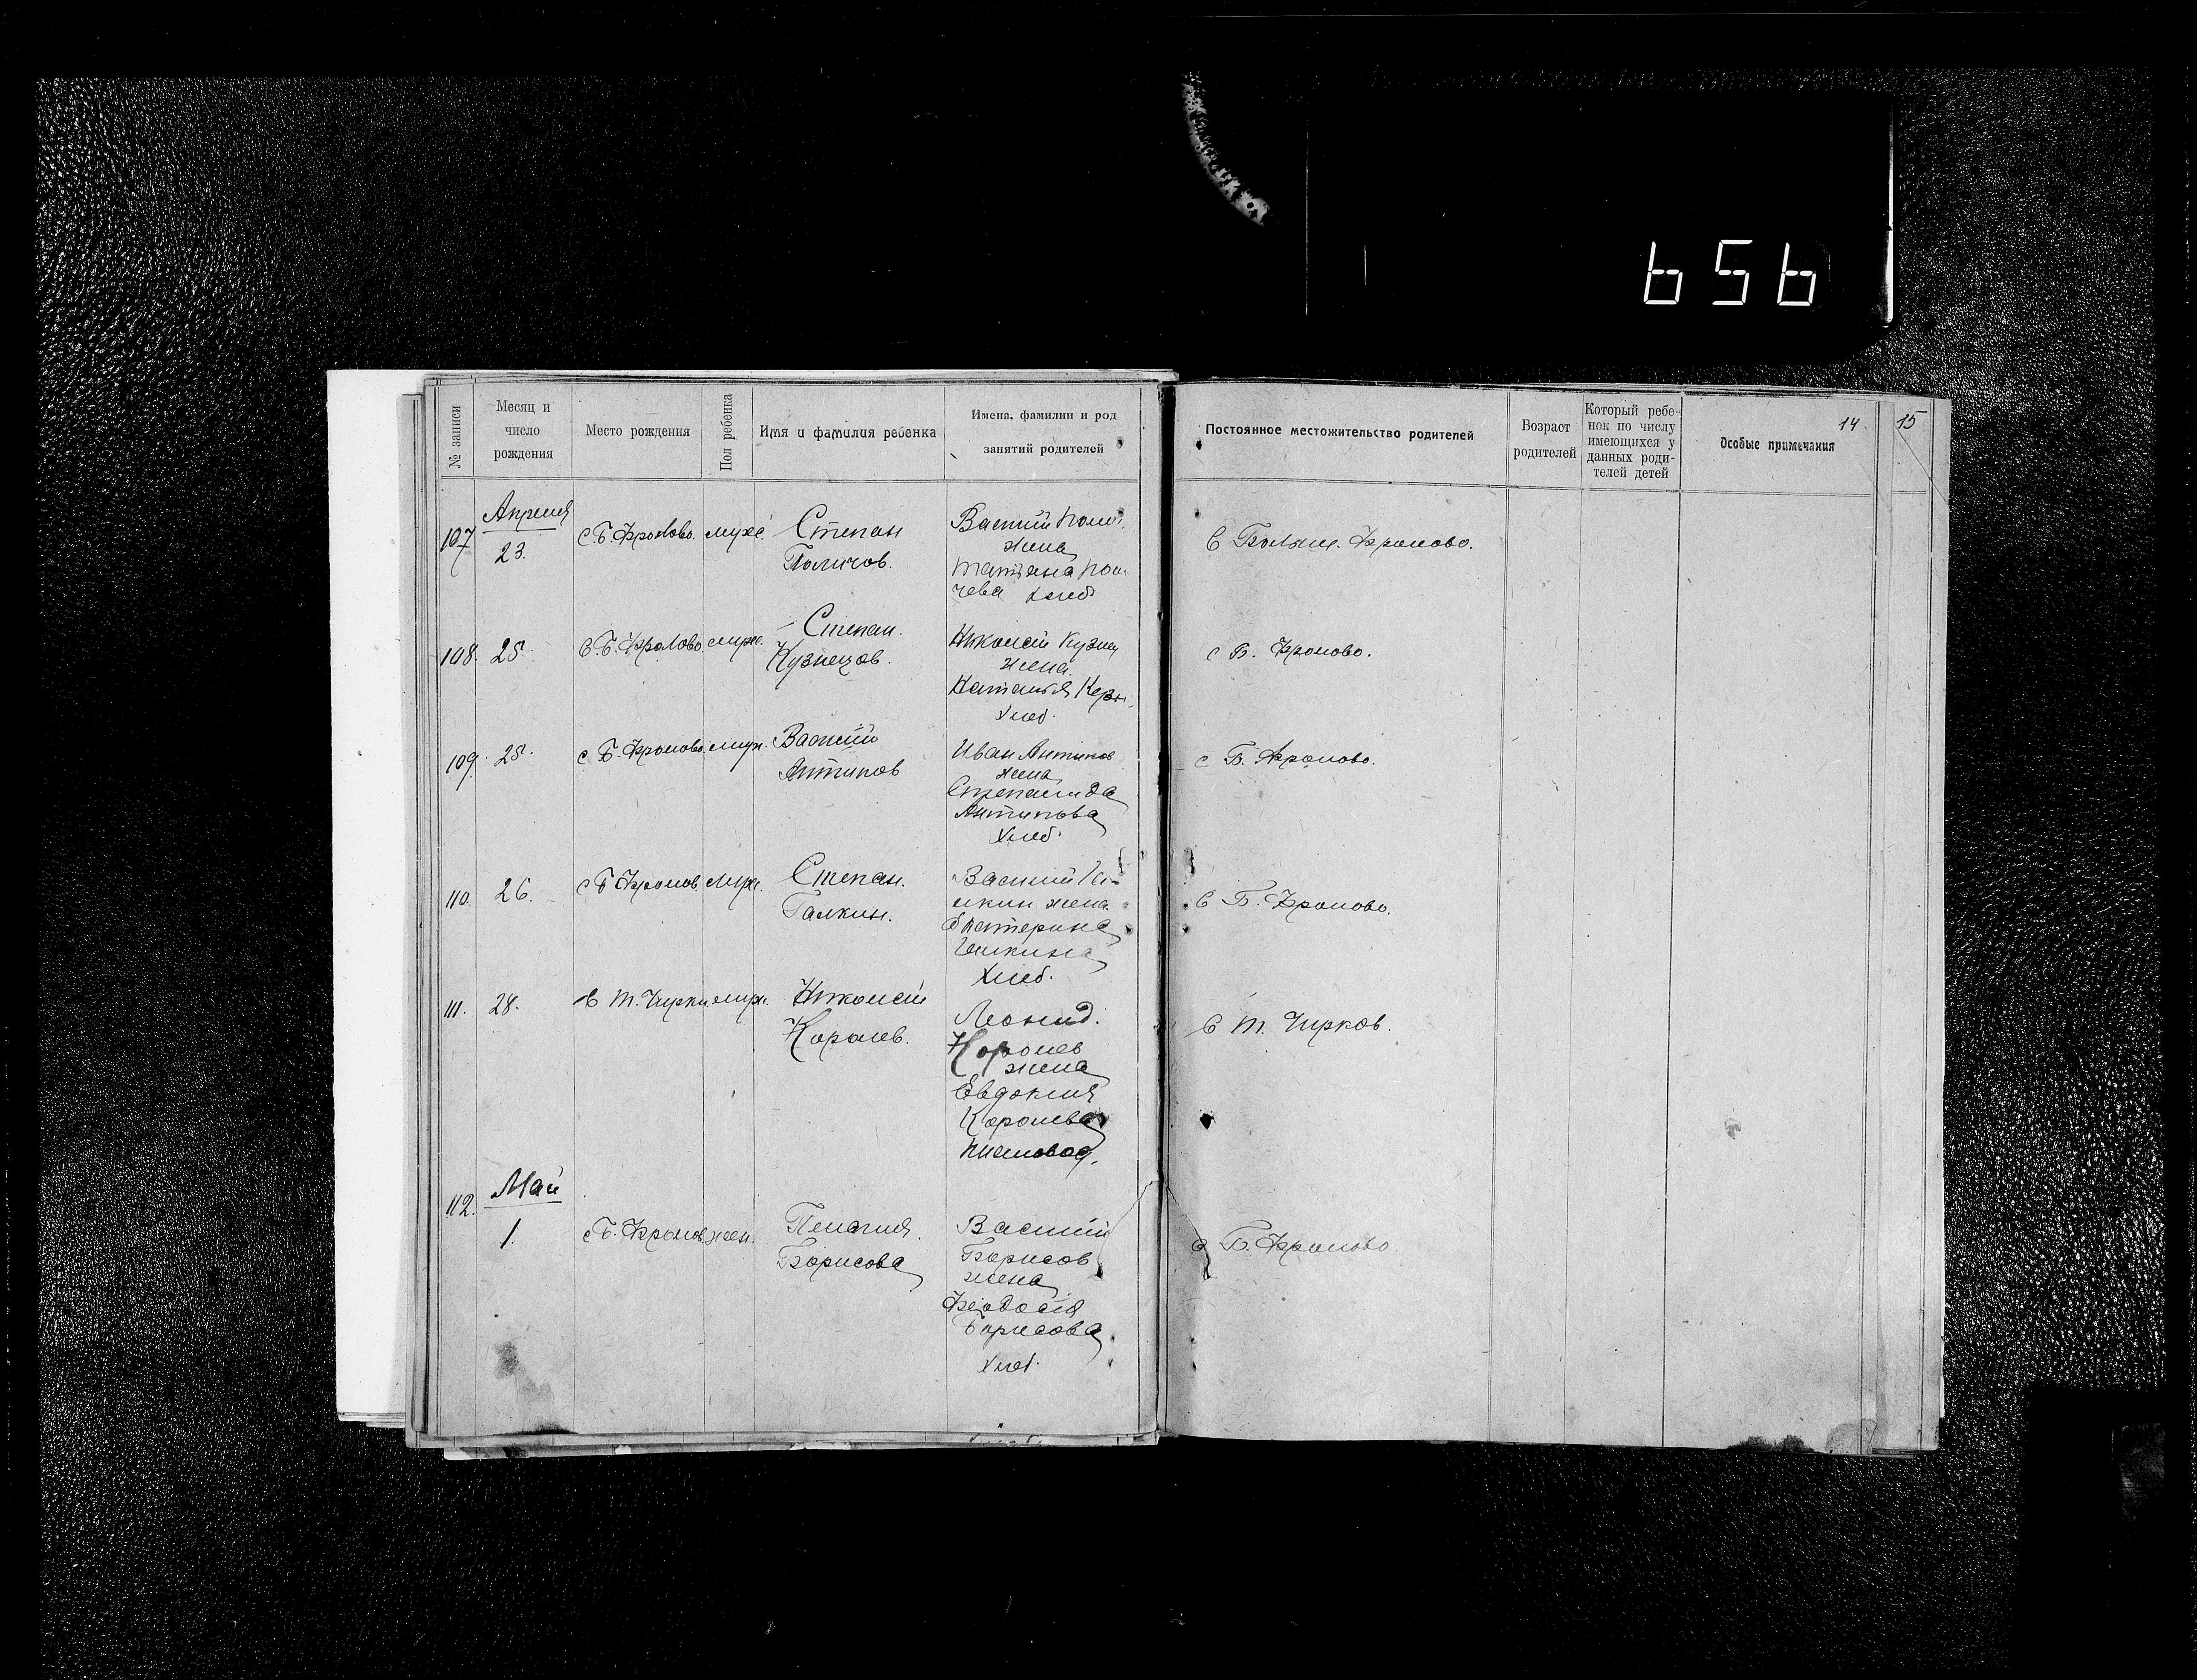 656
№ записи
Месяц и
число
рождения
Место рождения
Пол ребенка
Имя и фамилия ребенка
Имена, фамилии и род
занятий родителей
Постоянное местожительство родителей
Возраст
родителей
Который ребе-
нок по числу
имеющихся у
данных роди-
телей детей
14
Особые примечания
15
Апреля
107
23.
с Б. Фролово. муж.
Степан
Поличов.
Василий
жена
Татьяна
чева хлеб
С Больш. Фролово.
108. 25.
С. Б. Фролово. муж.
Степан.
Кузнецов.
Николай Кузнец
жена.
Наталья
хлеб.
с Б. Фролово.
109. 25.
с Б. Фролово. муж.
Василий
Антипов
Иван Антипов
жена
Степанида
Антипова
хлеб.
с Б. Фролово.
110. 26.
с Б Фролов. муж.
Степан.
Галкин.
Василий Га-
лкин жена
Екатерина
Галкина
хлеб.
С Б. Фролово.
111. 28.
С Т. Чирки муж.
Николай
Королев.
Леонид.
Королев
жена
Евдокия
Королева
С Т. Чирков.
Май
112.
1.
с Б. Фролов. жен.
Пелагия.
Борисова
Василий
Борисов
жена
Феодосия
Борисова
хлеб.
с Б. Фролово.